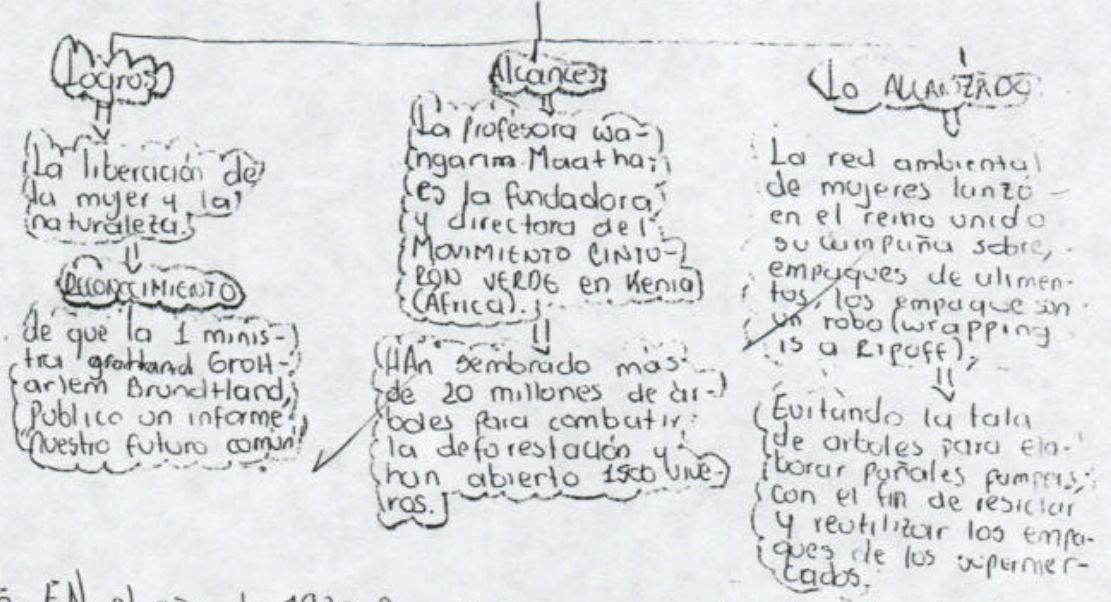 Logros
La libercición de
la mujer y la
naturaleza.
RECONOCIMIENTO
de que la 1 minis-
tra GroH-
arlem Brundtland,
Publico un informe
nuestro futuro comun
Alcances
La Profesora wa-
ngarima Maathai
es la fundadora
y directora del
MOVIMIENTO CINTU-
RON VERDE en Kenia
(África).
HAn sembrado mas
de 20 millones de ár-
boles para combatir
la deforestación y
han abierto 1500 vive-
ros.
Lo ALCANZADO
La red ambiental
de mujeres lanzó
en el reino unido
su campaña sobre,
empaques de alimen-
tos, los empaque son
un robo (wrapping
is a RIPOFF),
Evitando la tala
de arboles para ela-
borar pañales pampers,
con el fin de resiclar
y reutilizar los empa-
ques de los supermer-
cados.
EN